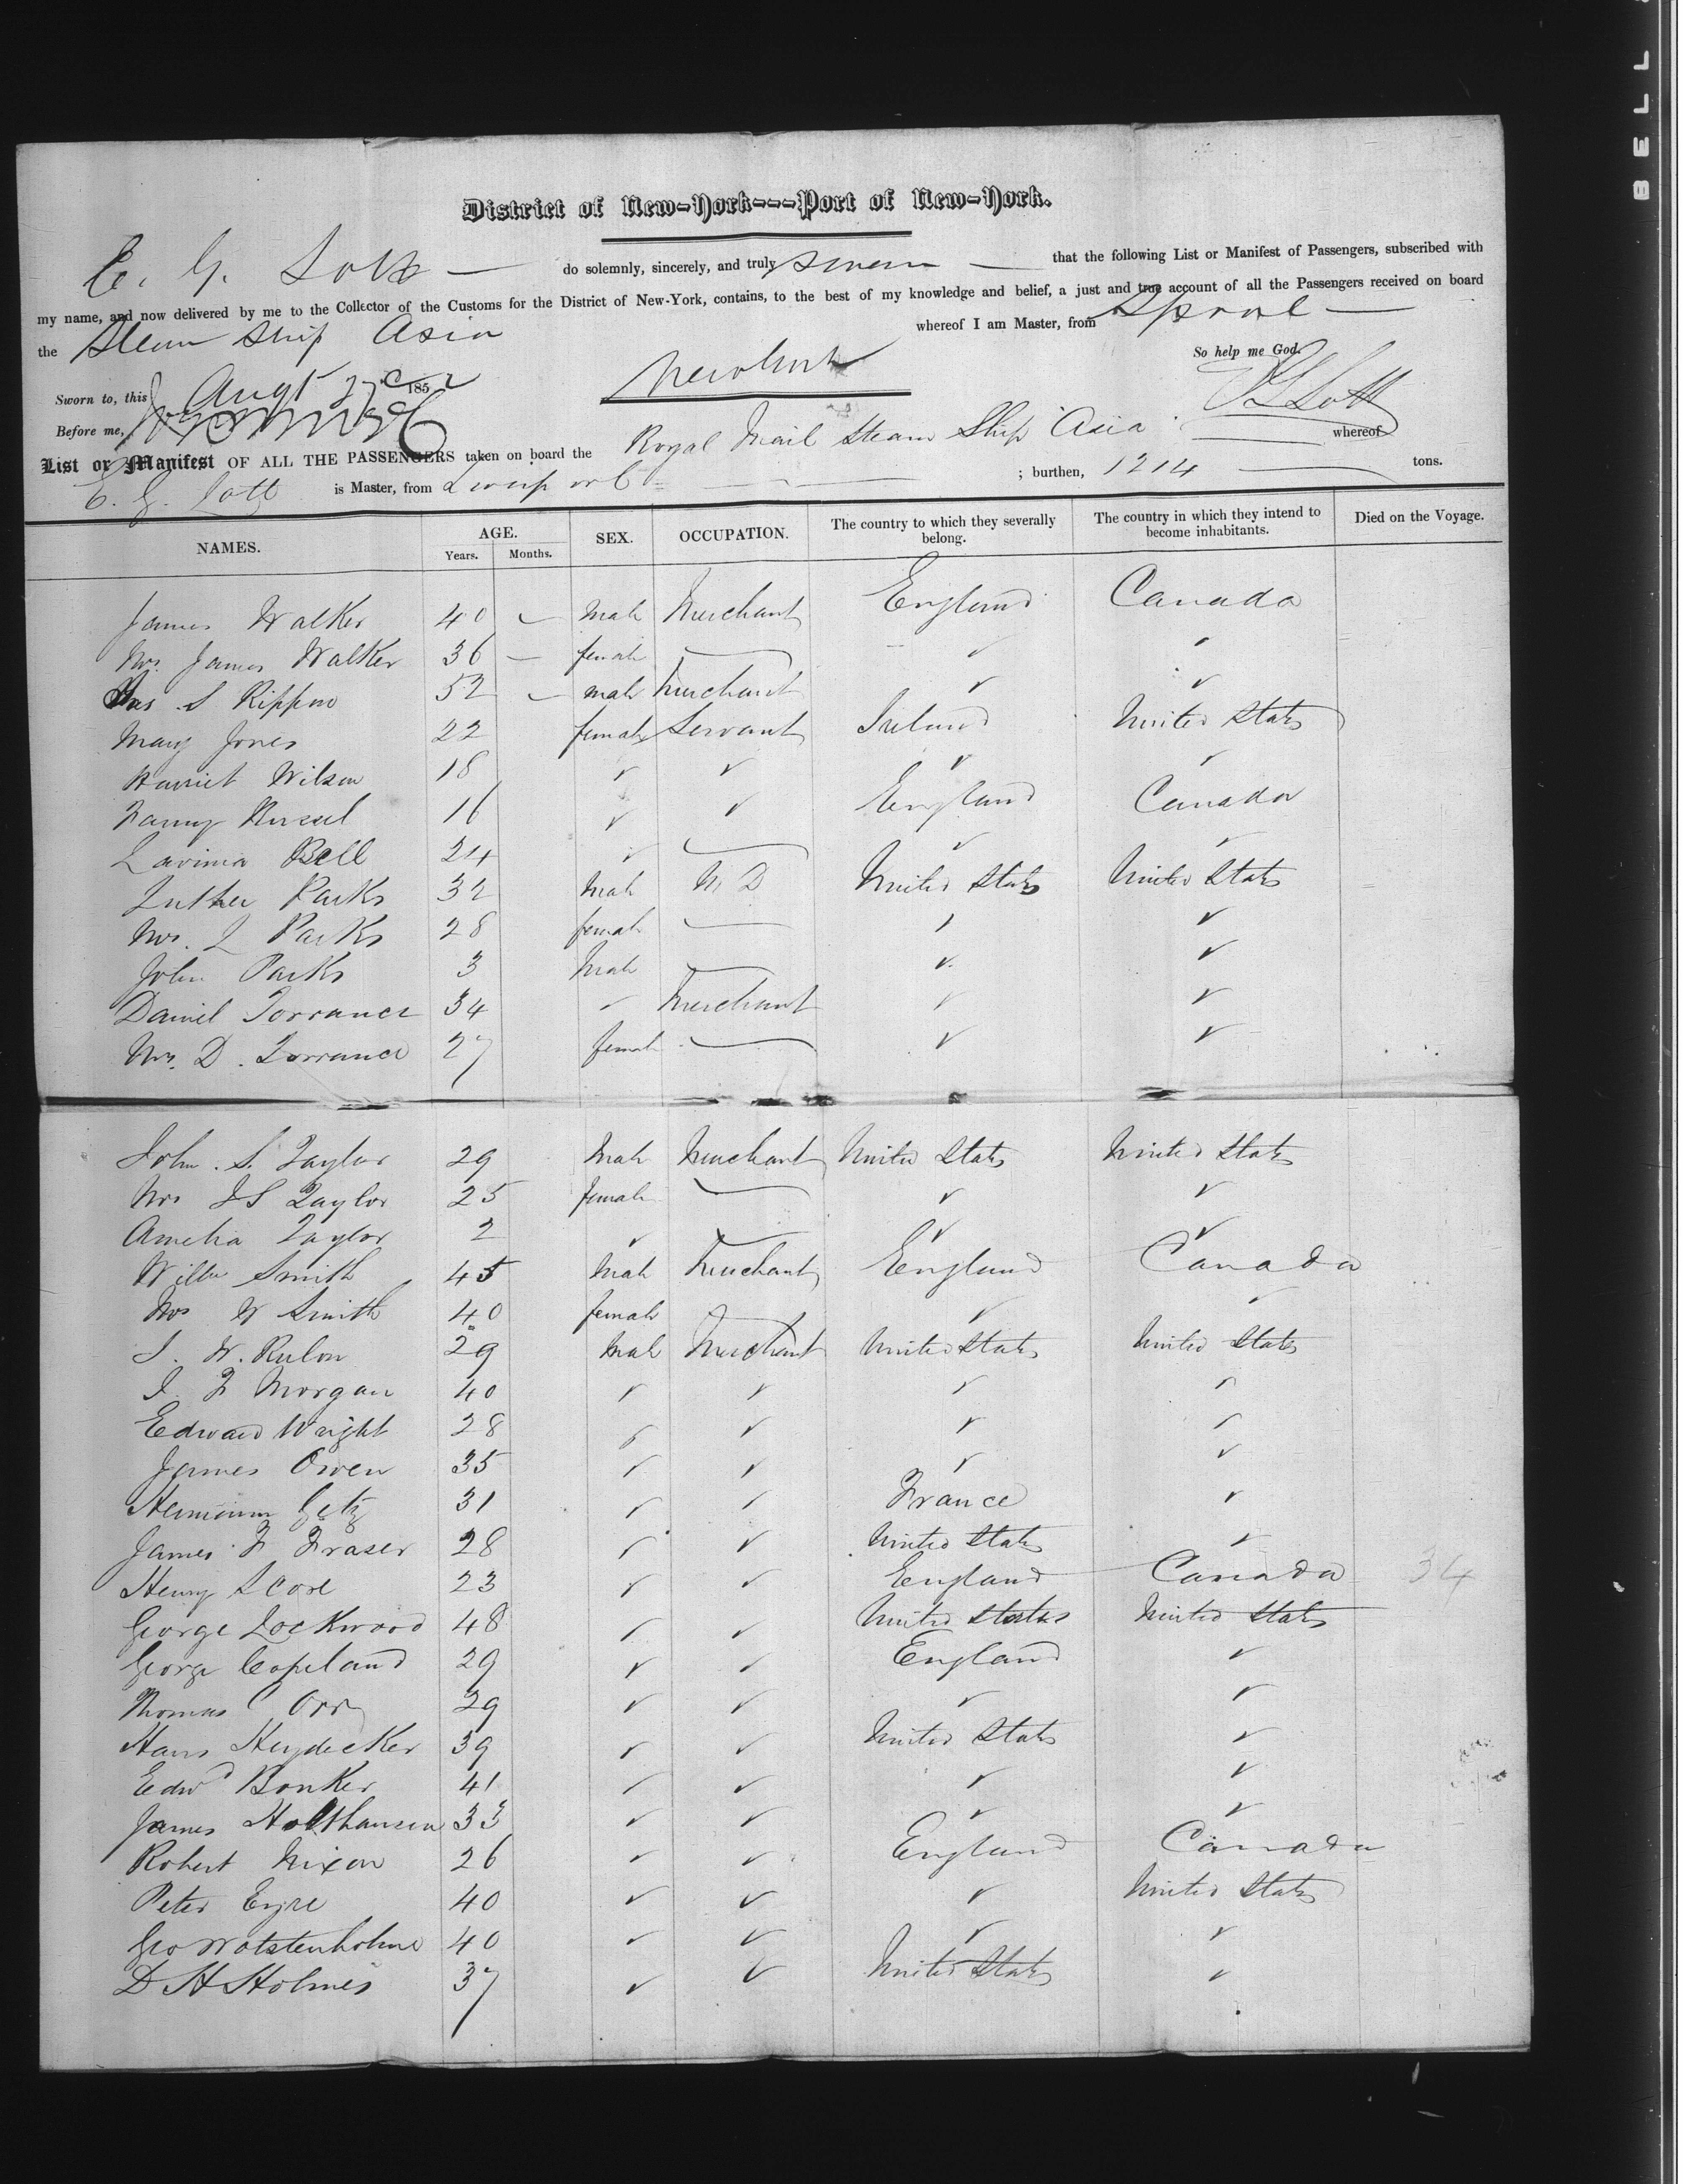 BELL
District of New-York---Port of New-York.
E. G. Lott — do solemnly, sincerely, and truly swear — that the following List or Manifest of Passengers, subscribed with
my name, and now delivered by me to the Collector of the Customs for the District of New-York, contains, to the best of my knowledge and belief, a just and true account of all the Passengers received on board
the Steam Ship Asia whereof I am Master, from Lpool —
So help me God.
Sworn to, this Augt 27 1852
E G Lott
Before me,
List or Manifest OF ALL THE PASSENGERS taken on board the Royal Mail Steam Ship Asia whereof
E. G. Lott is Master, from Liverpool ; burthen, 1214 tons.
NAMES. AGE. Years. Months. SEX. OCCUPATION. The country to which they severally belong. The country in which they intend to become inhabitants. Died on the Voyage.
James Walker 40 — male Merchant England Canada
Mrs. James Walker 36 — female — ✓ ✓
S Rippon 52 — male Merchant ✓ ✓
Mary Jones 22 female Servant Ireland United States
Harriet Wilson 18 ✓ ✓ ✓ ✓
Fanny 16 ✓ ✓ England Canada
Lavinia Bell 24 ✓ — ✓ ✓
Luther Parks 32 Male M D United States United States
Mrs. L Parks 28 female — ✓ ✓
John Parks 3 Male — ✓ ✓
Daniel Torrance 34 ✓ Merchant ✓ ✓
Mrs. D. Torrance 27 female — ✓ ✓
John. S. Taylor 29 Male Merchant United States United States
Mrs J S Taylor 25 female — ✓ ✓
Amelia Taylor 2 ✓ — ✓ ✓
Willm Smith 45 Male Merchant England Canada
Mrs W Smith 40 female — ✓ ✓
J. W. Rulon 29 Male Merchant United States United States
J. F Morgan 40 ✓ ✓ ✓ ✓
Edward Wright 28 ✓ ✓ ✓ ✓
James Owen 35 ✓ ✓ ✓ ✓
Hermann Getz 31 ✓ ✓ France ✓
James F Fraser 28 ✓ ✓ United States ✓
Henry Score 23 ✓ ✓ England Canada 34
George Lockwood 48 ✓ ✓ United States United States
George Copeland 29 ✓ ✓ England ✓
Thomas C Orr 29 ✓ ✓ ✓ ✓
Hans Heydecker 39 ✓ ✓ United States ✓
Edwd Bonker 41 ✓ ✓ ✓ ✓
James Holthausen 33 ✓ ✓ ✓ ✓
Robert Nixon 26 ✓ ✓ England Canada
Peter Eyre 40 ✓ ✓ ✓ United States
Geo Wolstenholme 40 ✓ ✓ ✓ ✓
D H Holmes 37 ✓ ✓ United States ✓